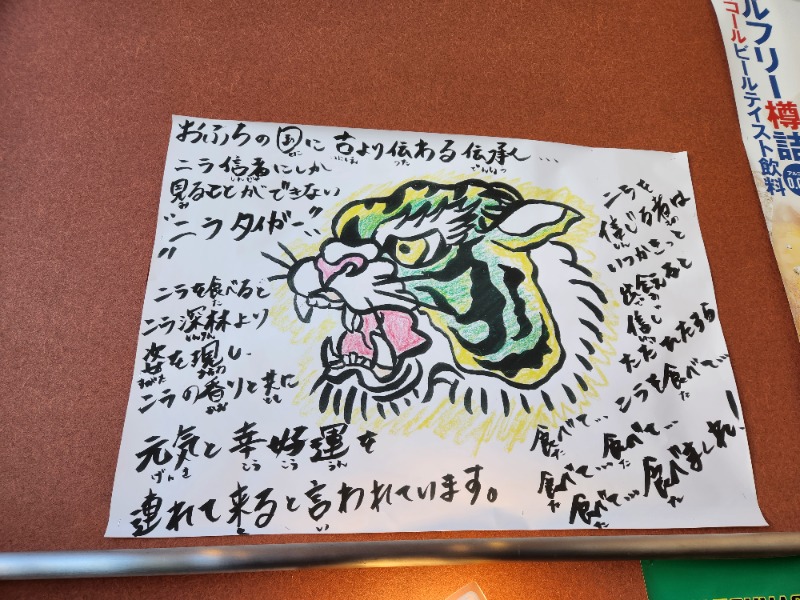 おふちの に 古より伝わる伝承、…
ニラ信者にしか
見ることができない
"ニラタイガー"
ニラを食べると
ニラ深林より
姿を現し
ニラの香りと共に
元気と幸好運を
げんき こう こう うん
連れて来ると言われています。
ニラを
信じる者は
いつかきっと
出会えると
信じ
ただひたすら
ニラを食べて…
食べて… 食べて…
食べて… 食べて… 食べまくれ!
ルフリー樽詰
コールビールテイスト飲料